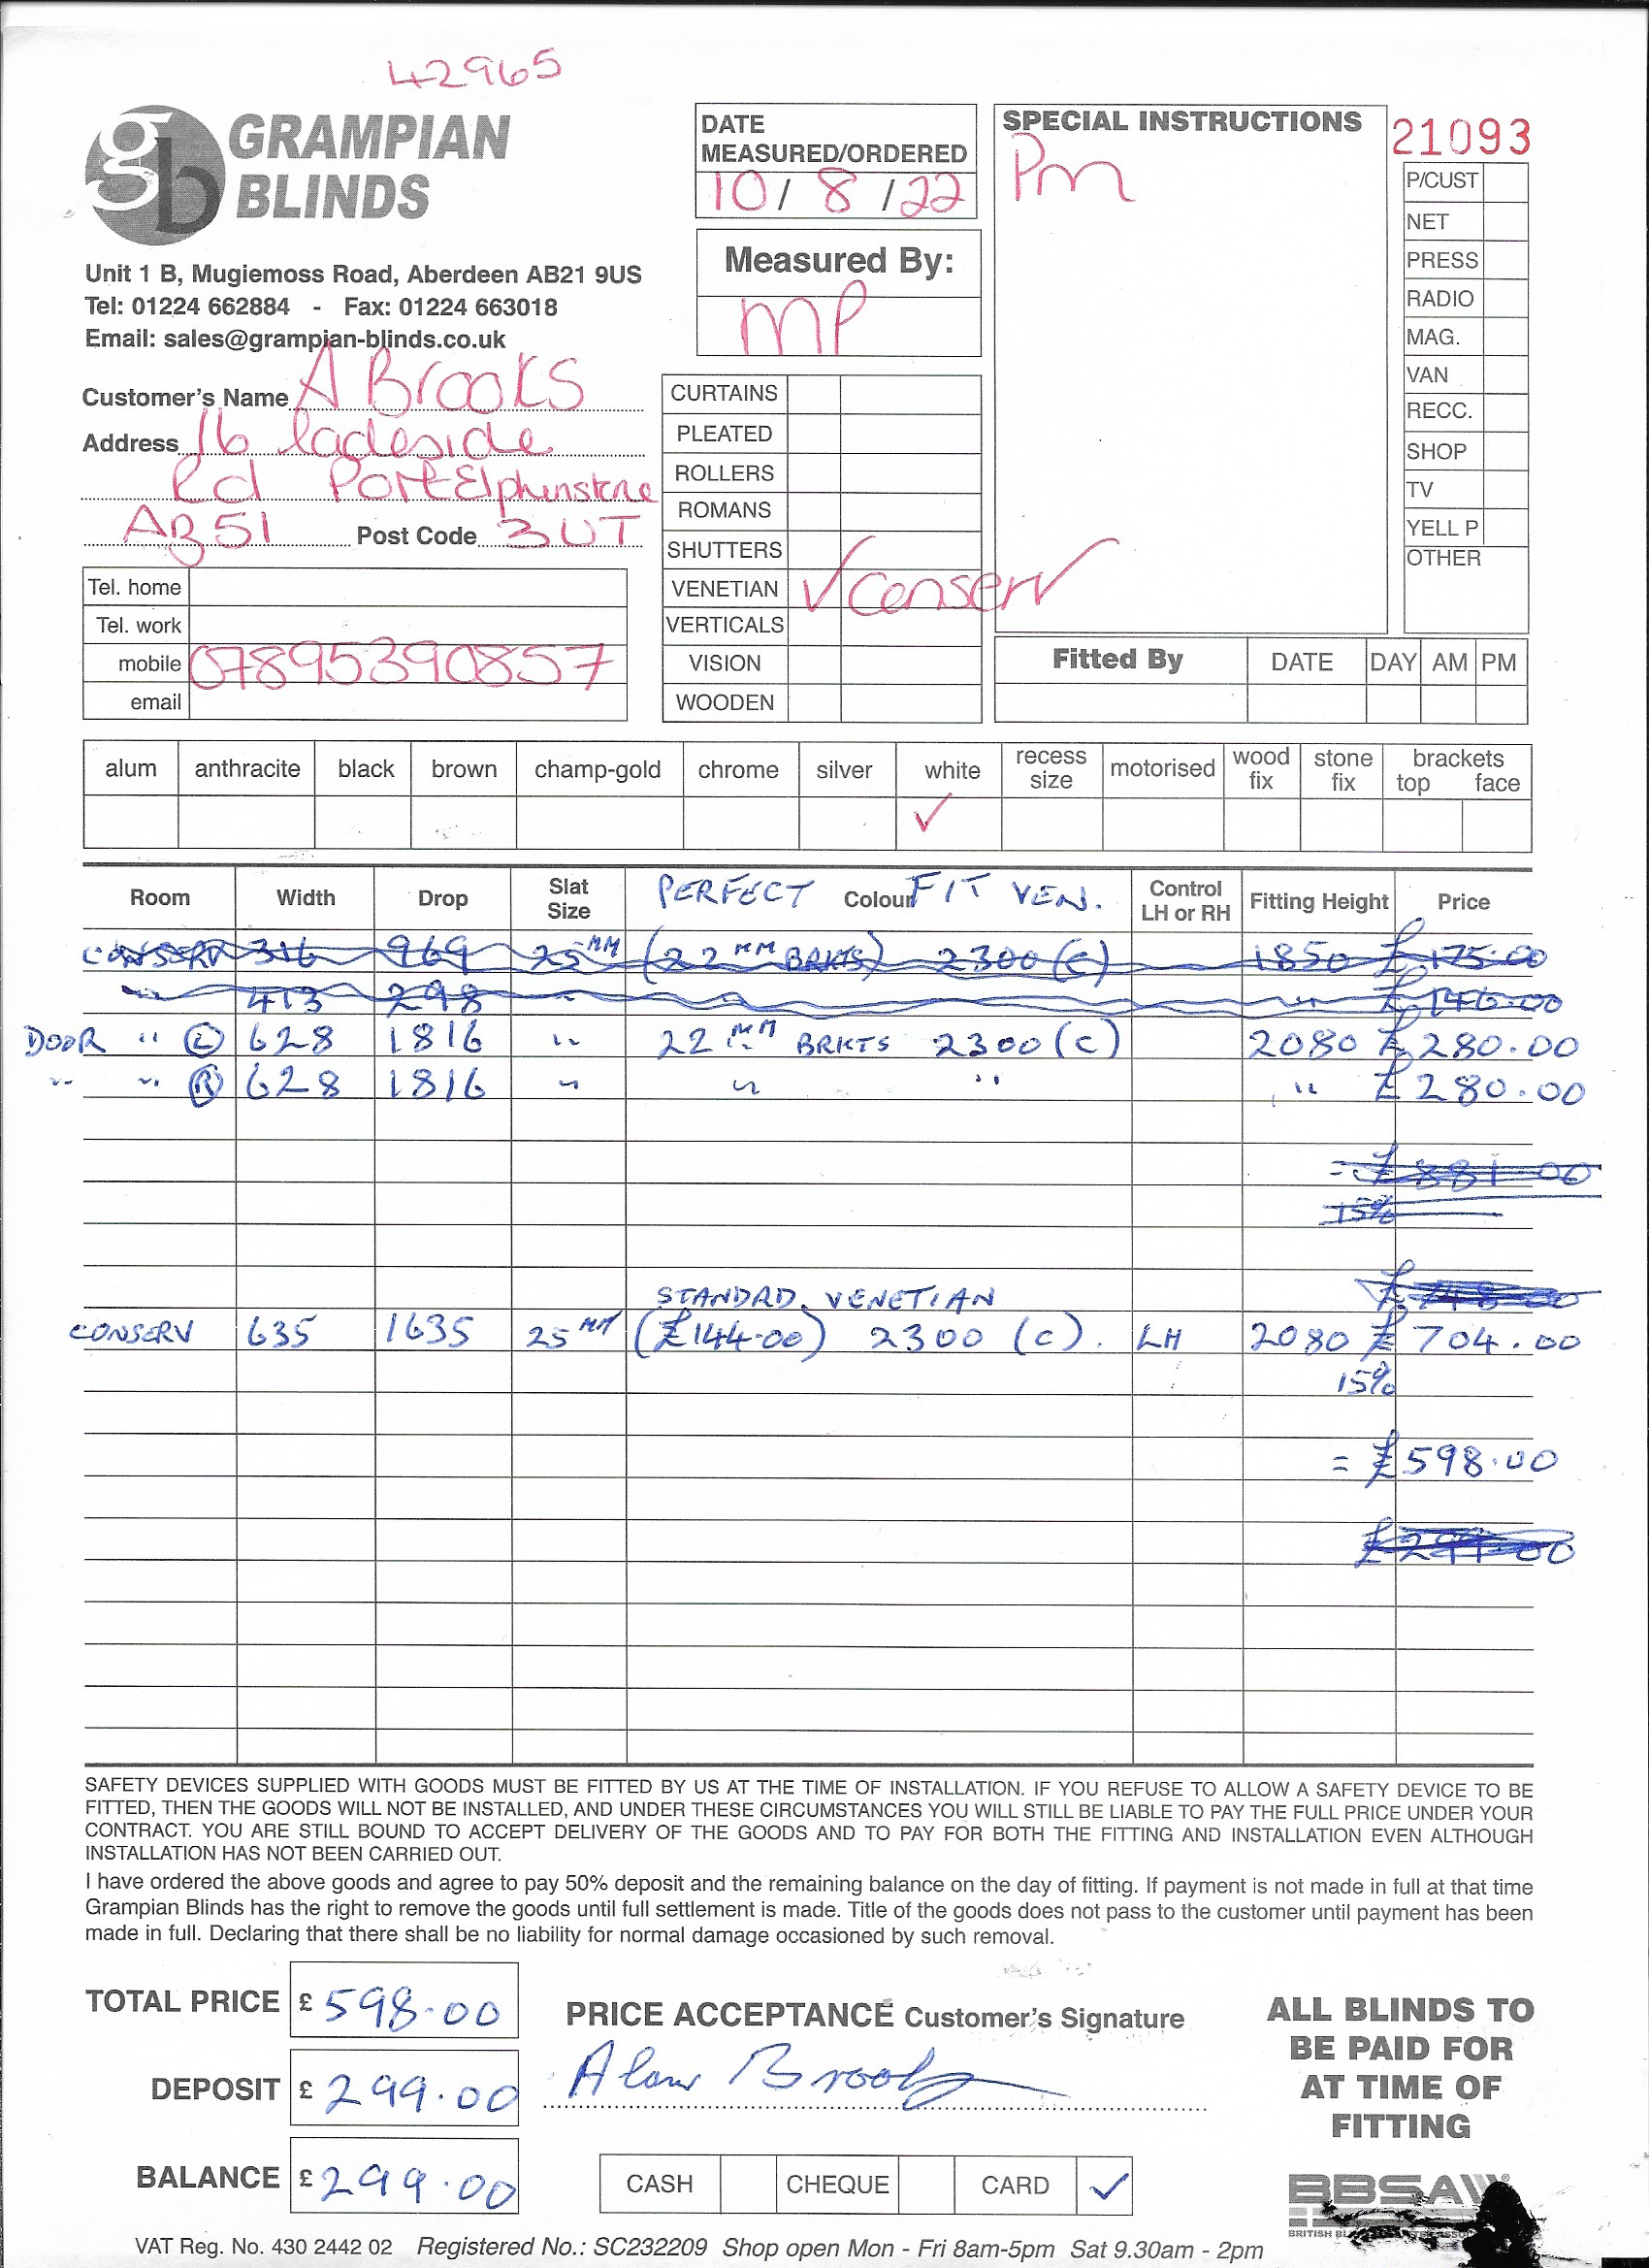 42965
GRAMPIAN
BLINDS
Unit 1 B, Mugiemoss Road, Aberdeen AB21 9US
Tel: 01224 662884 - Fax: 01224 663018
Email: sales@grampian-blinds.co.uk
Customer's Name A Brooks
Address 16 Ladeside
Rd Port Elphinstone
AB51 Post Code 3UT
Tel. home
Tel. work
mobile 07895390857
email
DATE
MEASURED/ORDERED
10/ 8 /22
Measured By:
MP
CURTAINS
PLEATED
ROLLERS
ROMANS
SHUTTERS
VENETIAN ✓ conserv
VERTICALS
VISION
WOODEN
SPECIAL INSTRUCTIONS
Pm
21093
P/CUST
NET
PRESS
RADIO
MAG.
VAN
RECC.
SHOP
TV
YELL P
OTHER
Fitted By DATE DAY AM PM
alum anthracite black brown champ-gold chrome silver white recess size motorised wood fix stone fix brackets top face
✓
Room Width Drop Slat Size PERFECT Colour FIT VEN. Control LH or RH Fitting Height Price
CONSERV 316 969 25MM (22MM BRKTS) 2300 (C) 1850 £175.00
" 413 298 " " " £146.00
DOOR " (L) 628 1816 " 22MM BRKTS 2300 (C) 2080 £280.00
" " (R) 628 1816 " " " " £280.00
= £881.00
15%
£748.00
STANDRD. VENETIAN
CONSERV 635 1635 25MM (£144.00) 2300 (C). LH 2080 £704.00
15%
= £598.00
£299.00
SAFETY DEVICES SUPPLIED WITH GOODS MUST BE FITTED BY US AT THE TIME OF INSTALLATION. IF YOU REFUSE TO ALLOW A SAFETY DEVICE TO BE
FITTED, THEN THE GOODS WILL NOT BE INSTALLED, AND UNDER THESE CIRCUMSTANCES YOU WILL STILL BE LIABLE TO PAY THE FULL PRICE UNDER YOUR
CONTRACT. YOU ARE STILL BOUND TO ACCEPT DELIVERY OF THE GOODS AND TO PAY FOR BOTH THE FITTING AND INSTALLATION EVEN ALTHOUGH
INSTALLATION HAS NOT BEEN CARRIED OUT.
I have ordered the above goods and agree to pay 50% deposit and the remaining balance on the day of fitting. If payment is not made in full at that time
Grampian Blinds has the right to remove the goods until full settlement is made. Title of the goods does not pass to the customer until payment has been
made in full. Declaring that there shall be no liability for normal damage occasioned by such removal.
TOTAL PRICE £ 598.00
DEPOSIT £ 299.00
BALANCE £ 299.00
PRICE ACCEPTANCE Customer's Signature
Alan Brooks
CASH CHEQUE CARD ✓
ALL BLINDS TO
BE PAID FOR
AT TIME OF
FITTING
BBSA
BRITISH
VAT Reg. No. 430 2442 02 Registered No.: SC232209 Shop open Mon - Fri 8am-5pm Sat 9.30am - 2pm